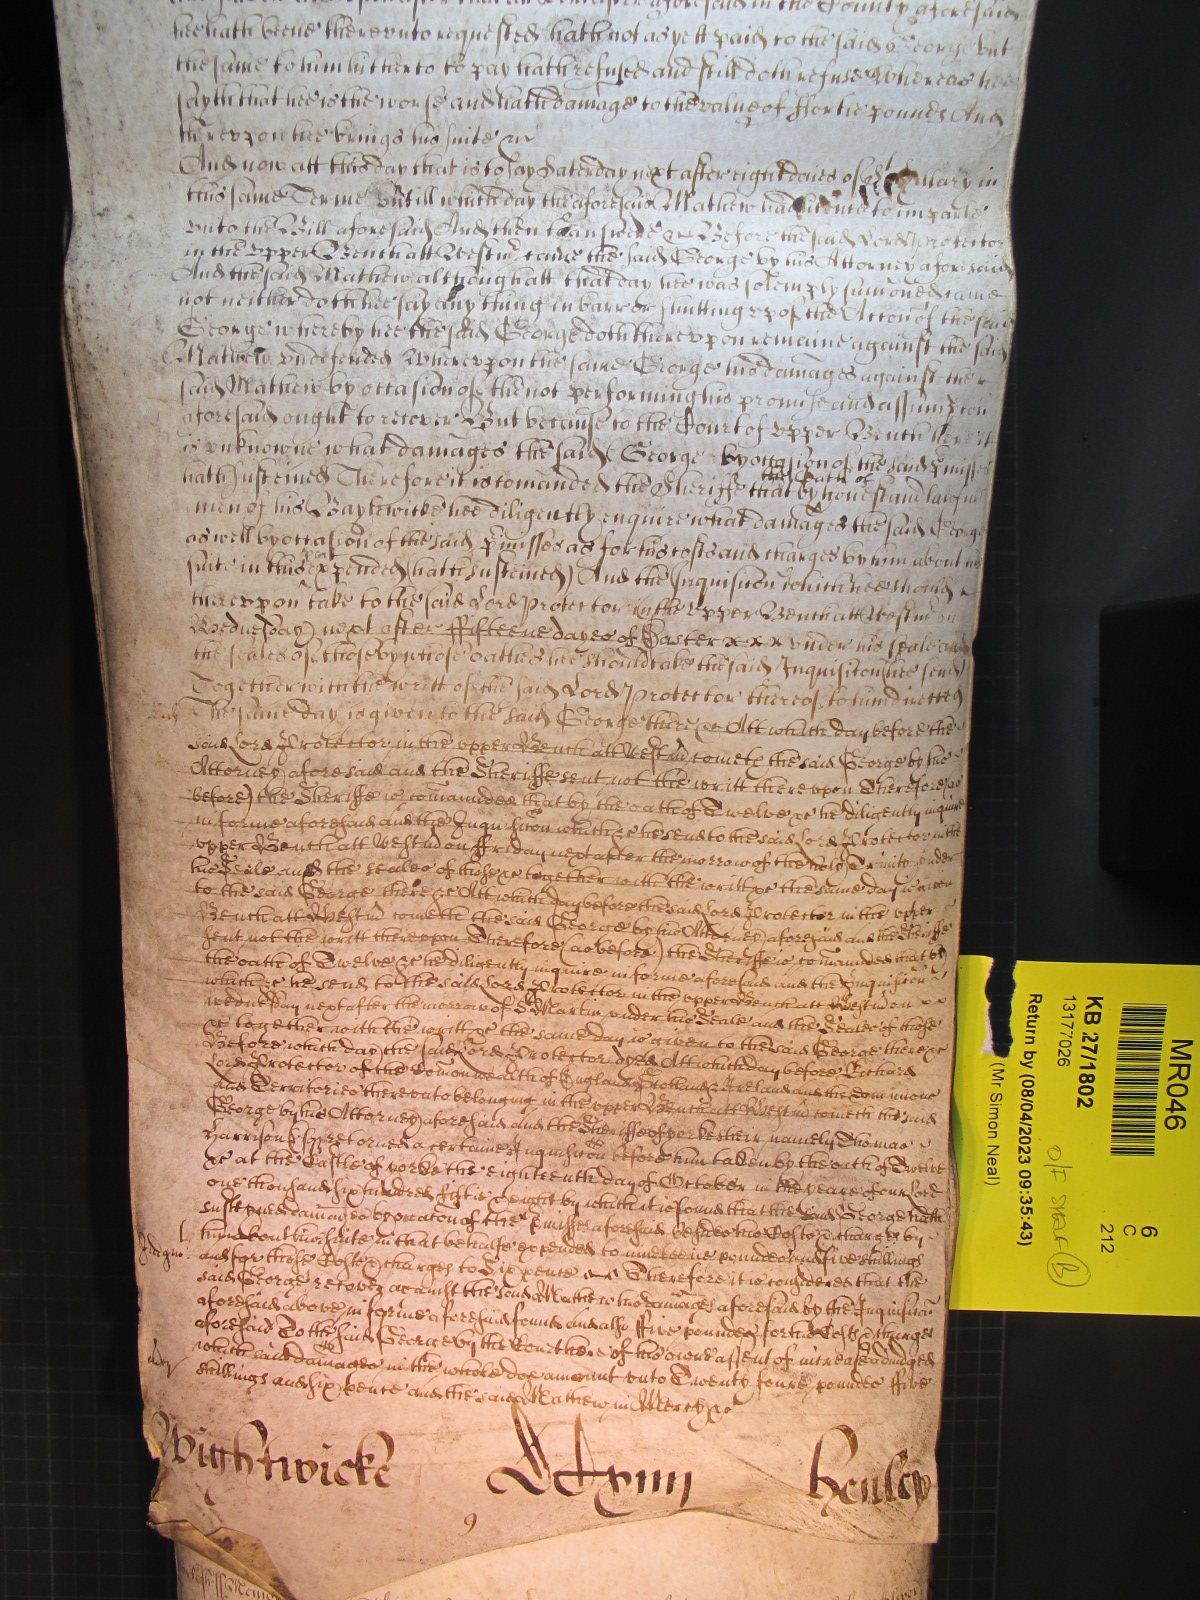 hee hath beene therevnto requested hath not as yett paid to the said George but
the same to him hitherto to pay hath refused and still doth refuse Whereas hee
sayth that hee is the worse and hath damage to the value of ffortie pounds And
therevpon hee brings his suite &c
And now att this day that is to say Saterday next after eight daies of Hillary in
this same Terme vntill which day the aforesaid Mathew had licence to imparle
vnto the Bill aforesaid And then to answere &c Before the said Lord Protector
in the vpper Bench att Westm came the said George by his Attorney aforesaid
And the said Mathew although att that day hee was solemply sumoned came
not neither doth hee say any thing in barr or shutting vp of the Accon of the said
George whereby hee the said George doth therevpon remaine against the said
Mathew vndefended Wherevpon the same George his damages against the
said Mathew by occasion of the not performing his promise and assumpcon
aforesaid ought to recover But because to the Court of vpper Bench here it
is vnknowne what damages the said George by occasion of the said pmisses
hath susteined Therefore it is comanded the Sheriffe that by the oath of honest and lawfull
men of his Baylewicke hee diligently enquire what damages the said George
as well by occasion of the said pmisses as for his costs and charges by him about his
suite in this pte expended hath susteined And the Inquisicon which hee should
therevpon take to the said Lord Protector in the vpper Bench att Westm on
Wednesday next after ffifteene dayes of Easter x x x vnder his seale and
the seales of those by whose oathes he should take the said Inquisicon hee send
Together with the writt of the said Lord Protector thereof to him directed
The same day is given to the said George there &c Att which day before the
said Lord Protector in the vpper Bench att Westm cometh the said George by his
Attorney aforesaid and the Sheriffe sent not the writt therevpon Therefore (as
before) the Sheriffe is comanded that by the oath of Twelve &c he diligently inquire
in forme aforesaid and the Inquisicon which &c he send to the said Lord Protector in the
vpper Bench att Westm on ffriday next after the morrow of the holy Trinity vnder
his Seale and the seales of those &c together with the writt &c the same day is given
to the said George there &c Att which day before the said Lord Protector in the vpper
Bench att Westm cometh the said George by his Attorney aforesaid and the Sheriffe
sent not the writt therevpon Therefore (as before) the Sheriffe is comanded that by
the oath of Twelve &c he diligently inquire in forme aforesaid and the Inquisicon
which &c he send to the said Lord Protector in the vpper Bench att Westm on x x
wednesday next after the morrow of St Martin vnder his Seale and the Seales of those
&c together with the writt &c the same day is given to the said George there &c
Before which day the said Lord Protector dyed Att which day before Richard
Lord Protector of the Comonwealth of England Scotland & Ireland and the Dominions
and Territories therevnto belonging in the vpper Bench att Westm cometh the said
George by his Attorney aforesaid and the Sheriffe of yorkesheir namely Thomas
Harrison Esqr retorned a certaine Inquisicon before him taken by the oath of Twelve
&c at the Castle of yorke the eighteenth day of October in the yeare of our Lord
one thousand six hundred fiftie & eight by which it is found that the said George hath
susteyned damages by occasion of the pmisses aforesaid besides his Costs & charges by
him about his suite in that behalfe expended to nineteene pounds and five shillings
and for those Costs & charges to Six pence Therefore it is considered that the
said George recover against the said Mathew his damages aforesaid by the Inquisicon
aforesaid above in forme aforesaid found and also ffive pounds for the Costs & charges
aforesaid To the said George by the Court here of his owne assent of increase adiudged
which said damages in the whole doe amount vnto Twenty foure pounds ffive
shillings and six pence and the said Mathew in Mercy &c
Wightwicke
Henley
9
MR046
KB 27/1802
13177026
Return by (08/04/2023 09:35:43)
(Mr Simon Neal)
6
C
212